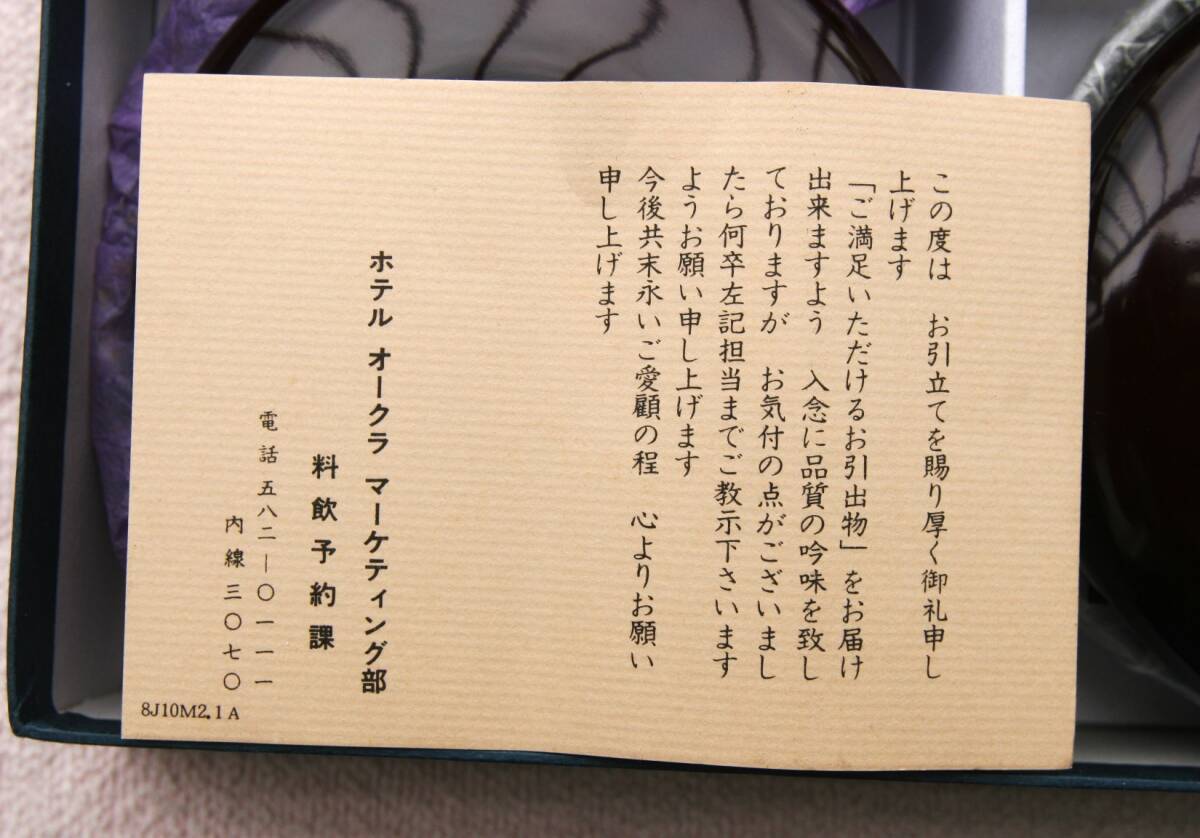 この度は　お引立てを賜り厚く御礼申し
上げます
「ご満足いただけるお引出物」をお届け
出来ますよう　入念に品質の吟味を致し
ておりますが　お気付の点がございまし
たら何卒左記担当までご教示下さいます
ようお願い申し上げます
今後共末永いご愛顧の程　心よりお願い
申し上げます
ホテル オークラ マーケティング部
料飲予約課
電話 五八二―〇一一一
内線 三〇七〇
8J10M2.1A